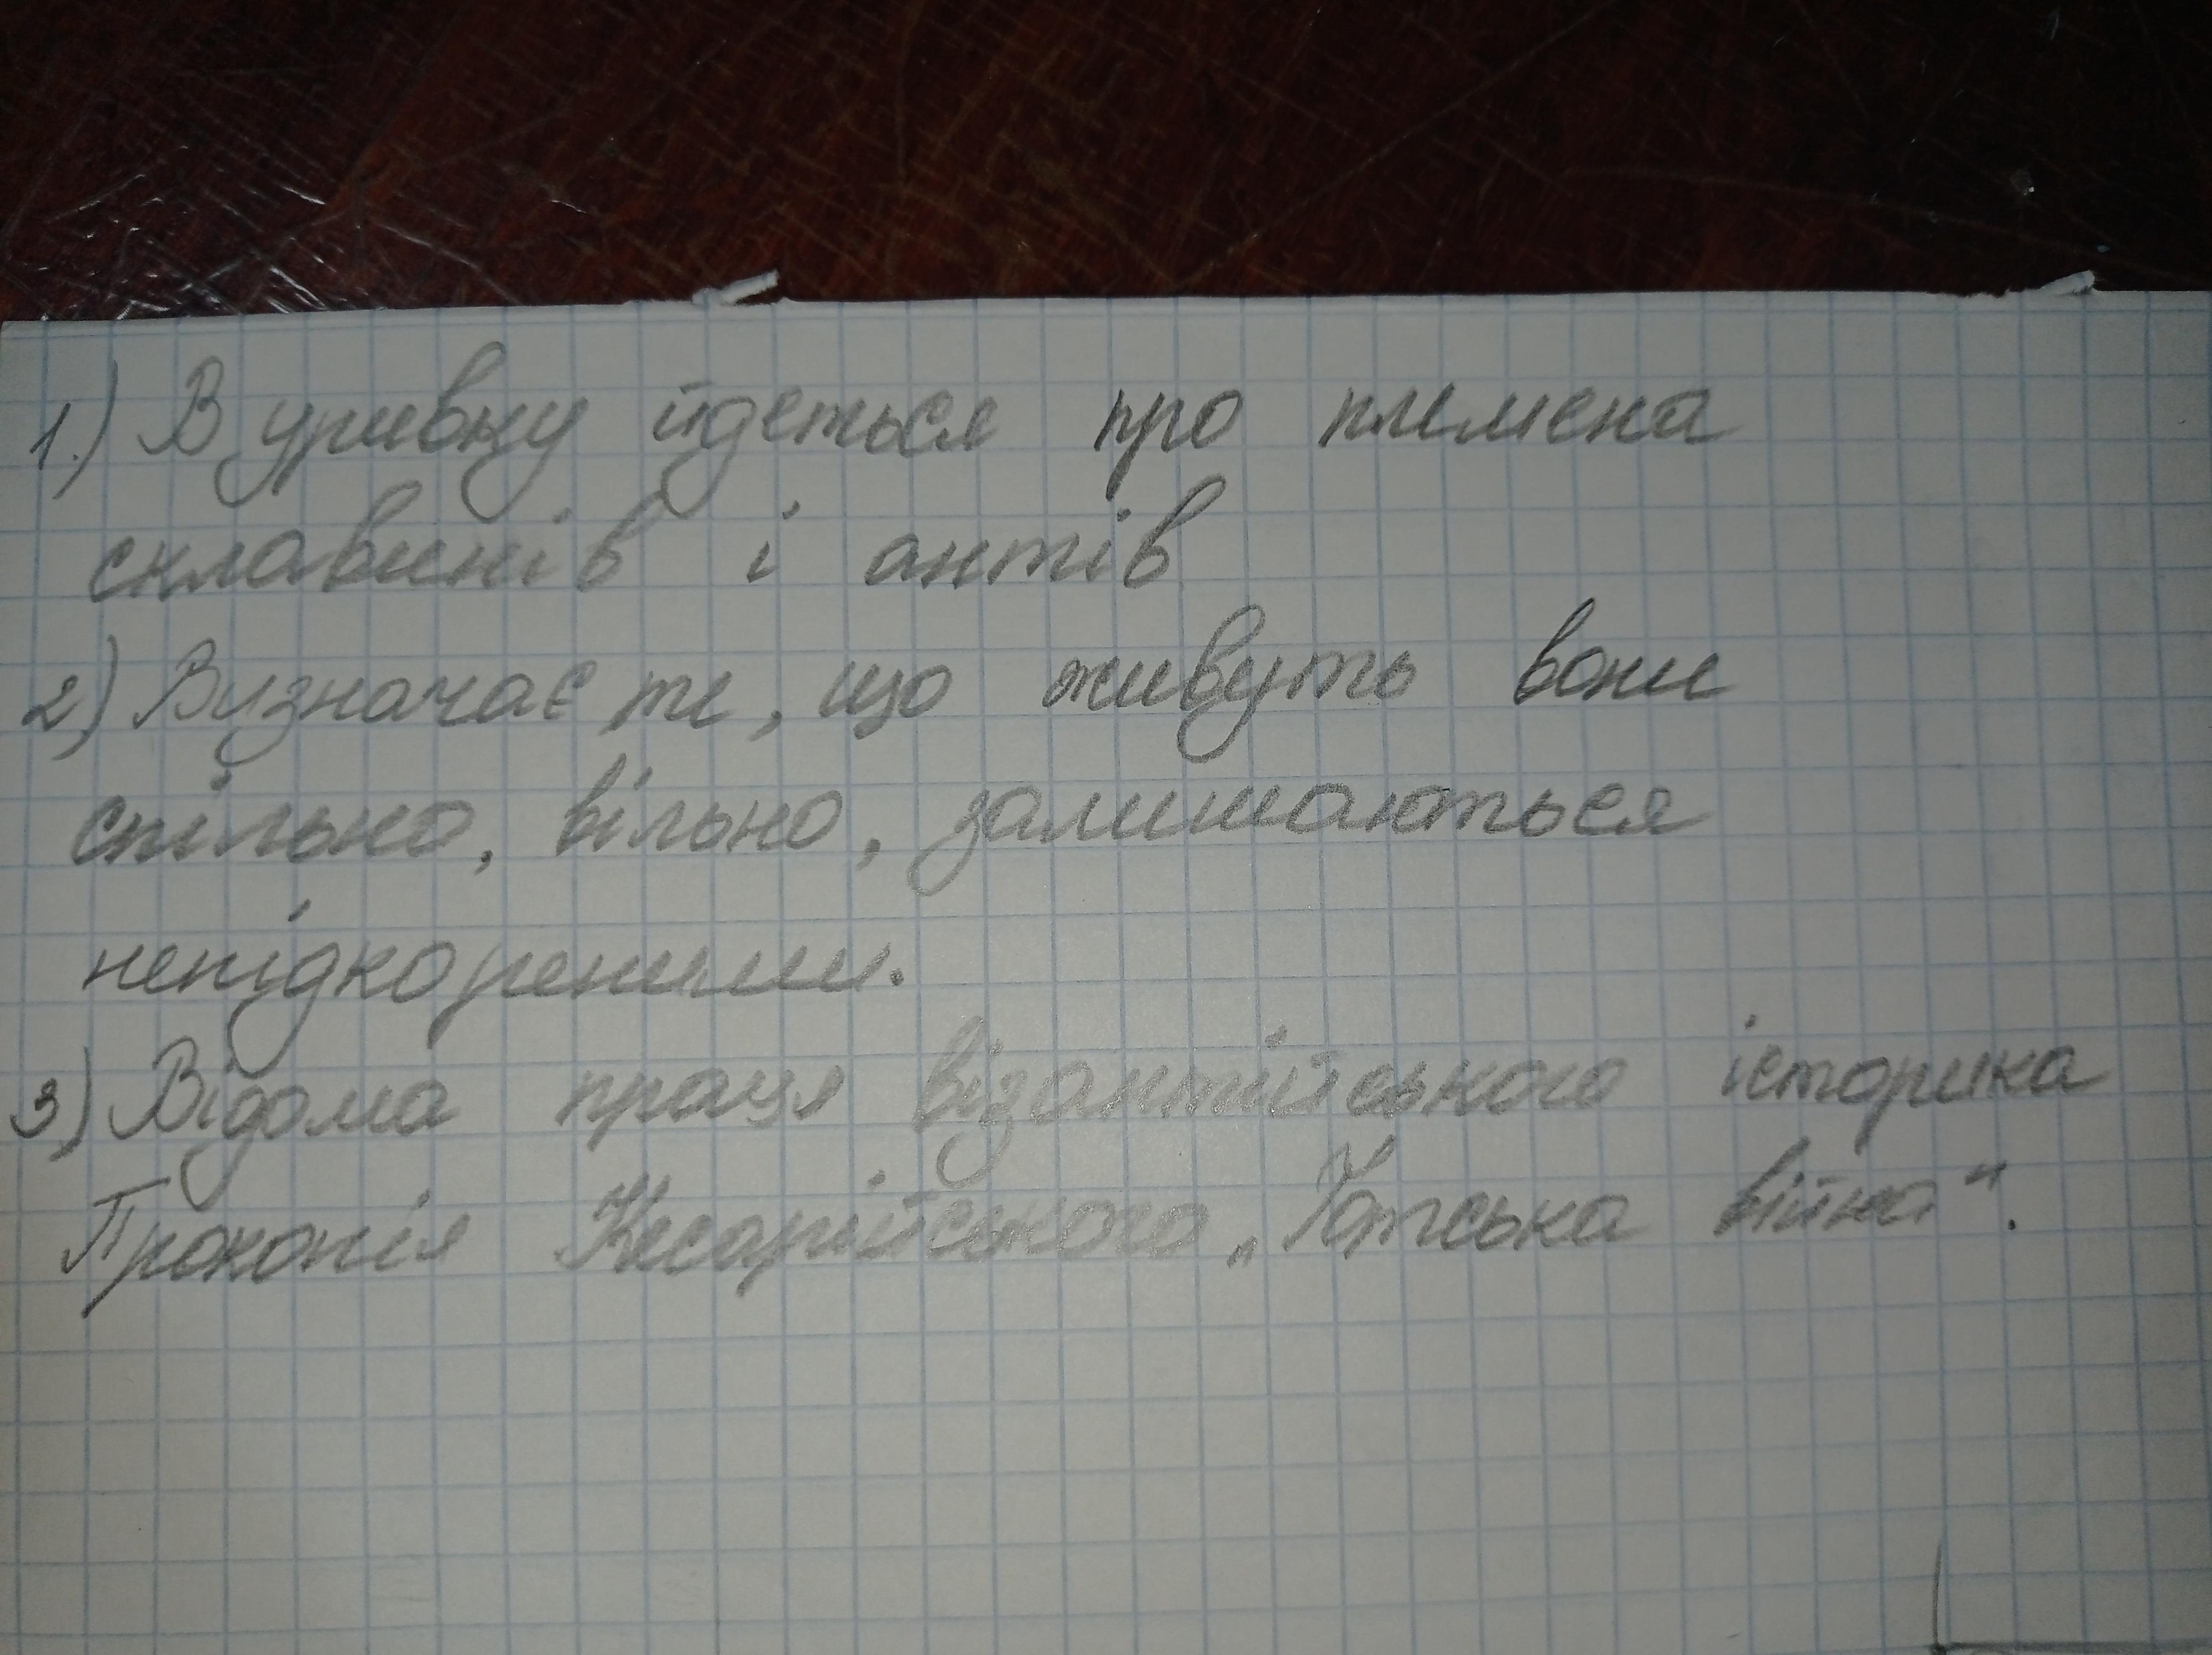 1.) В уривку йдеться про племена
склавинів і антів
2) Визначає те, що живуть вони
спільно, вільно, залишаються
непідкореними.
3) Відома праця візантійського історика
Прокопія Кесарійського „Готська війна".